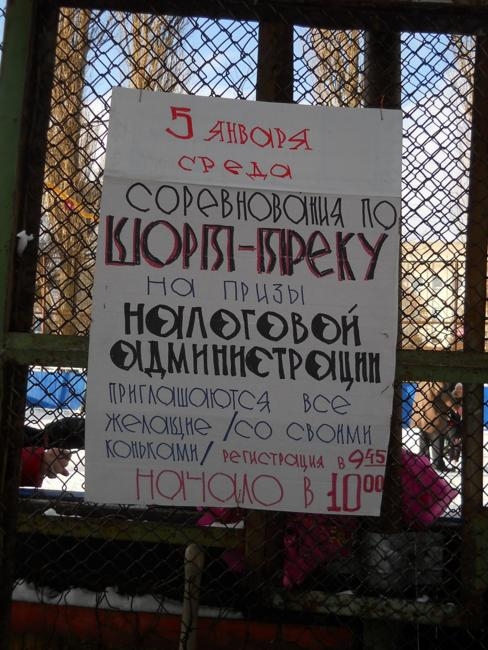 5 ЯНВАРЯ
СРЕДА
СОРЕВНОВАНИЯ ПО
ШОРТ-ТРЕКУ
НА ПРИЗЫ
НАЛОГОВОЙ
АДМИНИСТРАЦИИ
ПРИГЛАШАЮТСЯ ВСЕ
ЖЕЛАЮЩИЕ /СО СВОИМИ
КОНЬКАМИ/ РЕГИСТРАЦИЯ В 9 45
НАЧАЛО В 10 00